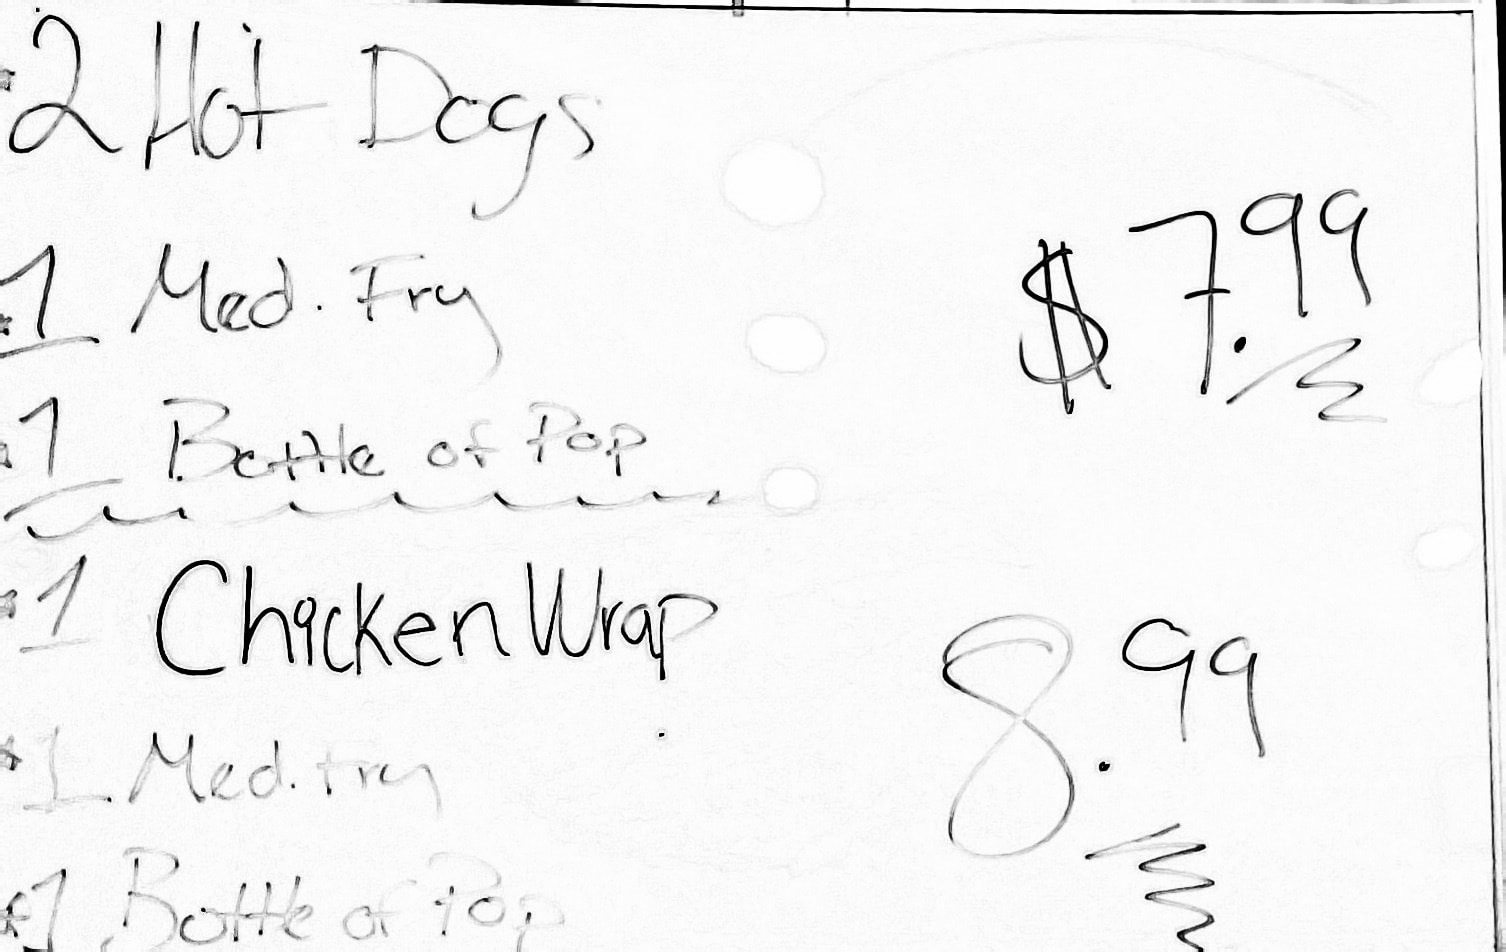 *2 Hot Dogs
$7.99
*1 Med. Fry
*1 Bottle of Pop
*1 Chicken Wrap
8.99
*1 Med. fry
*1 Bottle of Pop